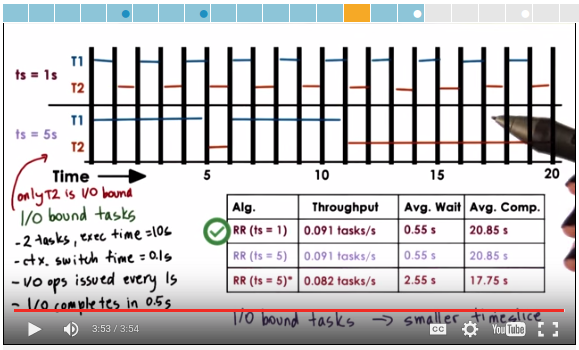 T1
ts = 1s
T2
T1
ts = 5s
T2
Time
5
10
15
20
only T2 is I/O bound
I/O bound tasks
- 2 tasks, exec time = 10s
- ctx. switch time = 0.1s
- I/O ops issued every 1s
- I/O completes in 0.5s
Alg. Throughput Avg. Wait Avg. Comp.
RR (ts = 1) 0.091 tasks/s 0.55 s 20.85 s
RR (ts = 5) 0.091 tasks/s 0.55 s 20.85 s
RR (ts = 5)* 0.082 tasks/s 2.55 s 17.75 s
I/O bound tasks → smaller timeslice
3:53 / 3:54
CC
YouTube